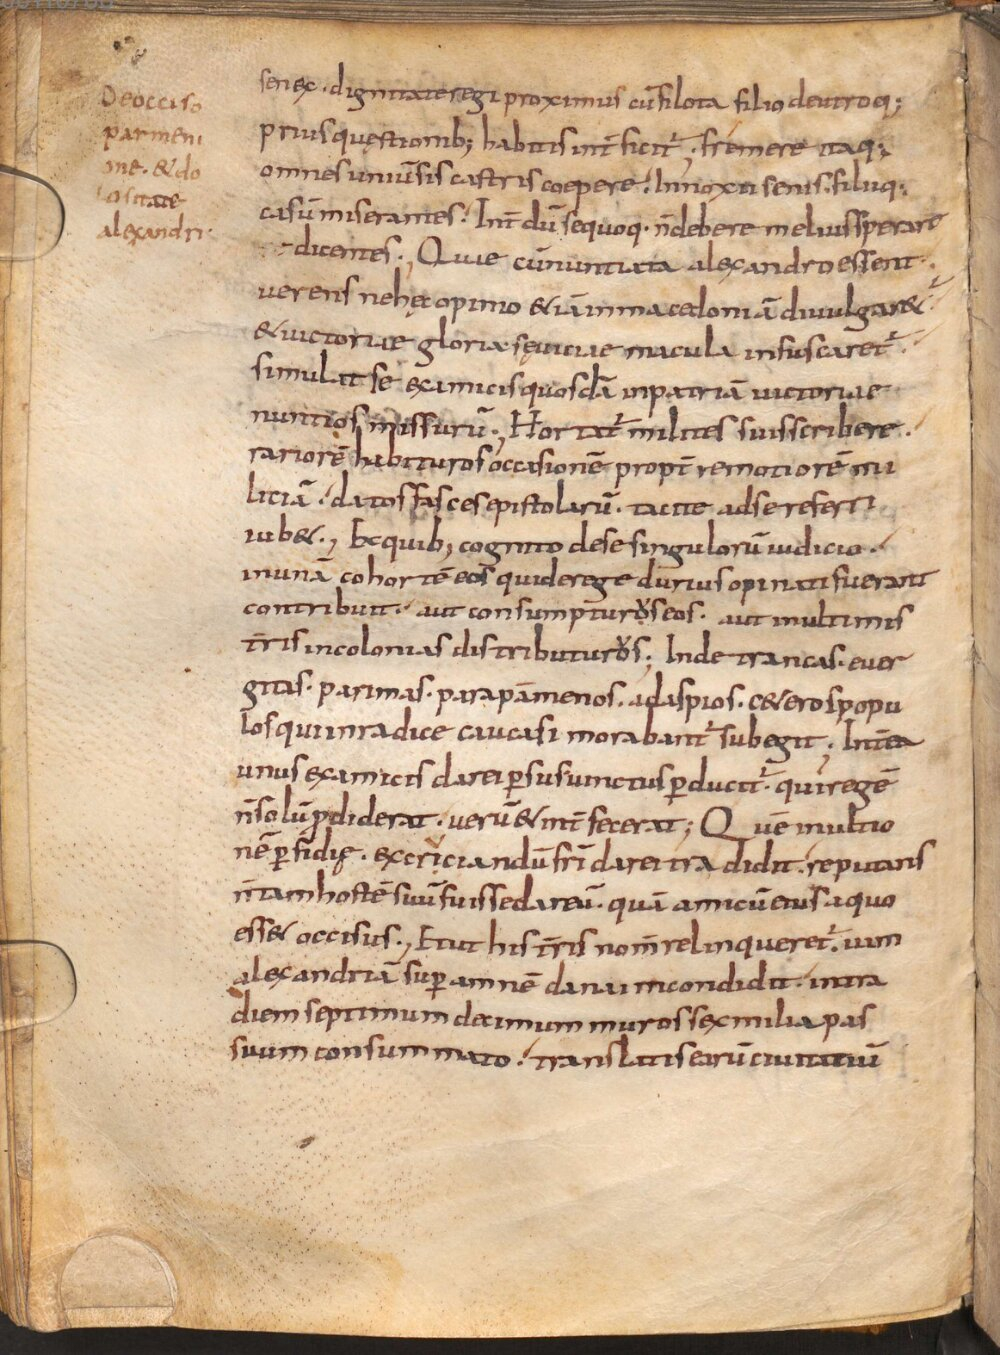 De occiso
parmeni
one · & do
lositate
alexandri ·
senex · dignitate regi proximus cū filota filio de utroq;
prius quęstionib; habitis int̄ficit᷑ ; fremere itaq;
omnes uniūsis castris coepere · Innoxii senis · filiiq;
casū miserantes · Int̄dū se quoq · n̄ debere melius sperare
dicentes ·, Quae cū nuntiata alexandro essent ·
uerens ne hęc opinio & iā in macedoniā diuulgar&᷑ ·
& uictoriae gloria sęuiciae macula infuscaret᷑ ·
simulat se ex amicis quosdā in patriā uictoriae
nuntios missurū ·, Hortat᷑ milites suis scribere ·
rariorē habituros occasionē propt̄ remotiorē mi
liciā · datos fasces epistolarū · tacite ad se referri
iub& ·, Ex quib; cognito de se singulorū iudicio ·
in unā cohortē eos qui de rege durius opinati fuerant
contribuit · aut consumpturos eos · aut in ultimis
t̄ris in colonias distributuros ; Inde trancas · euer
gitas · parimas · parapāmenos · adaspios · c&eros popu
los qui in radice caucasi morabant᷑ subegit ; Int̄ea
unus ex amicis darei p̱sus uinctus p̱ducit᷑ · qui regē
n̄ solū p̱diderat · uerū & int̄fecerat ; Quē in ultio
nē p̱fidię · excruciandū fr̄i darei tradidit · reputans
n̄ tam hostē suū fuisse dareū · quā amicū eius a quo
ess& occisus ·, Et ut his t̄ris nom̄ relinqueret᷑ · iam
alexandriā sup̱ amnē danaim condidit · intra
diem septimum decimum muros sex milia pas
suum consummato · translatis earū ciuitatiū